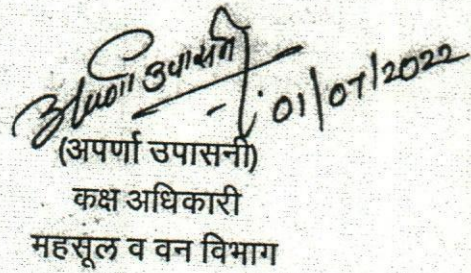 अपर्णा उपासनी 01/07/2022
(अपर्णा उपासनी)
कक्ष अधिकारी
महसूल व वन विभाग